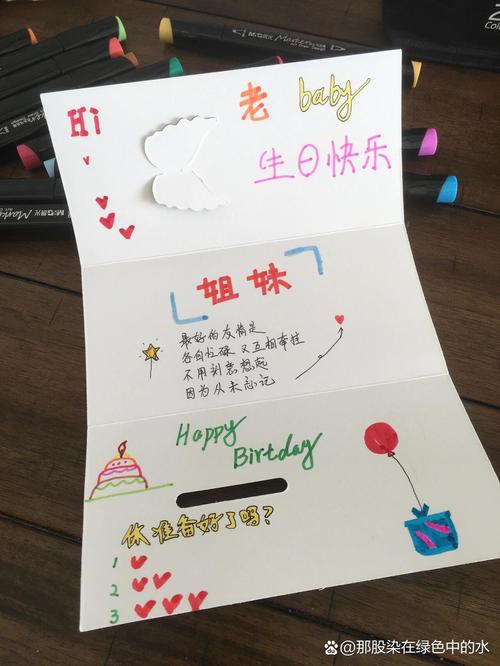 Hi
老 baby
生日快乐
姐妹
最好的友情是
各自忙碌 又互相牵挂
不用刻意想起
因为从未忘记
Happy
Birtday
休准备好了吗?
1
2
3
@那股染在绿色中的水